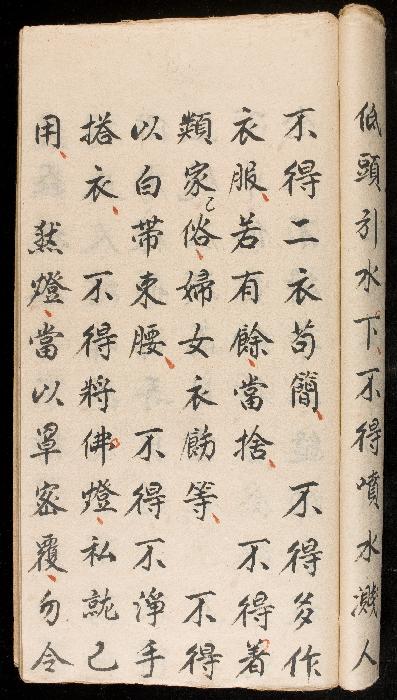 低頭引水下不得噴水濺人
不得二衣苟簡　不得多作
衣服若有餘當捨　不得着
類家俗婦女衣飭等　不得
以白帶束腰　不得不淨手
搭衣　不得將佛燈私就己
用　然燈當以罩密覆勿令